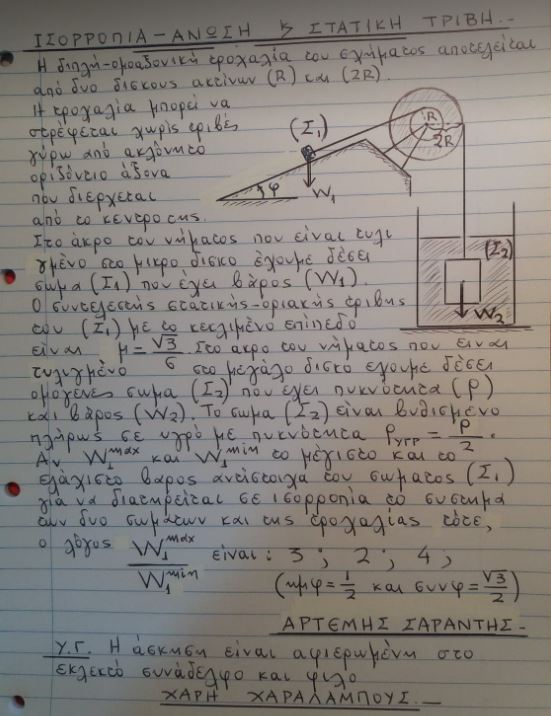 ΙΣΟΡΡΟΠΙΑ - ΑΝΩΣΗ & ΣΤΑΤΙΚΗ ΤΡΙΒΗ.-
Η διπλή-ομοαξονική τροχαλία του σχήματος αποτελείται
από δυο δίσκους ακτίνων (R) και (2R).
Η τροχαλία μπορεί να
στρέφεται χωρίς τριβές
γύρω από ακλόνητο
οριζόντιο άξονα
που διέρχεται
από το κέντρο της.
(Σ1)
W1
φ
R
2R
(Σ2)
W2
Στο άκρο του νήματος που είναι τυλι
γμένο στο μικρό δίσκο έχουμε δέσει
σώμα (Σ1) που έχει βάρος (W1).
Ο συντελεστής στατικής-οριακής τριβής
του (Σ1) με το κεκλιμένο επίπεδο
είναι μ = √3/6. Στο άκρο του νήματος που είναι
τυλιγμένο στο μεγάλο δίσκο έχουμε δέσει
ομογενές σώμα (Σ2) που έχει πυκνότητα (ρ)
και βάρος (W2). Το σώμα (Σ2) είναι βυθισμένο
πλήρως σε υγρό με πυκνότητα ρυγρ = ρ/2.
Αν W1max και W1min το μέγιστο και το
ελάχιστο βάρος αντίστοιχα του σώματος (Σ1)
για να διατηρείται σε ισορροπία το σύστημα
των δυο σωμάτων και της τροχαλίας τότε,
ο λόγος W1max/W1min είναι: 3 ; 2 ; 4 ;
(ημφ = 1/2 και συνφ = √3/2)
ΑΡΤΕΜΗΣ ΣΑΡΑΝΤΗΣ-
Υ.Γ. Η άσκηση είναι αφιερωμένη στο
εκλεκτό συνάδελφο και φίλο
ΧΑΡΗ ΧΑΡΑΛΑΜΠΟΥΣ.-